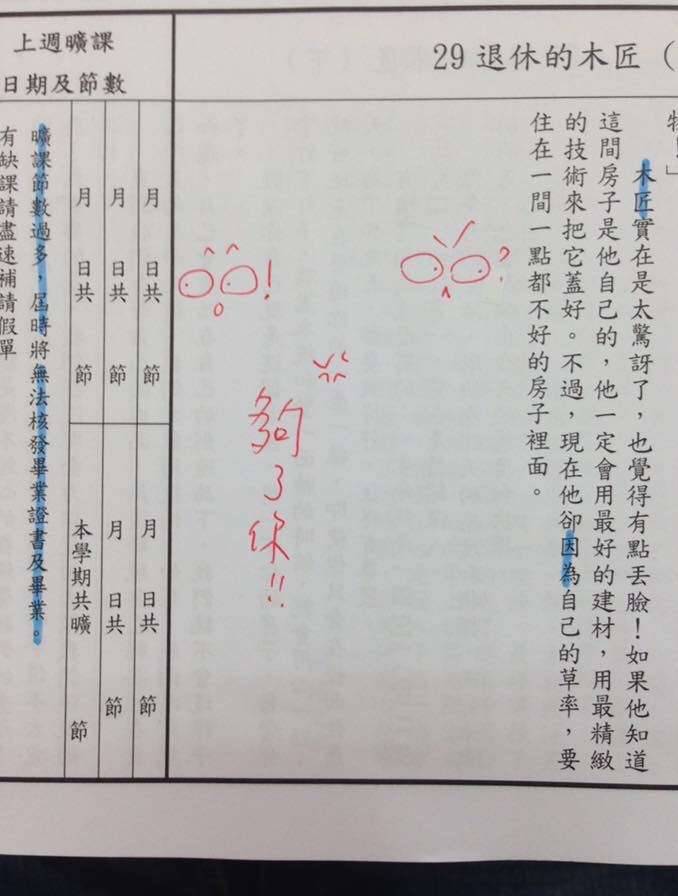 29退休的木匠（
物！」
木匠實在是太驚訝了，也覺得有點丟臉！如果他知道
這間房子是他自己的，他一定會用最好的建材，用最精緻
的技術來把它蓋好。不過，現在他卻因為自己的草率，要
住在一間一點都不好的房子裡面。
?
!
夠了你!!
上週曠課
日期及節數
月 日共 節
月 日共 節
月 日共 節
月 日共 節
月 日共 節
本學期共曠 節
曠課節數過多，屆時將無法核發畢業證書及畢業。
有缺課請盡速補請假單